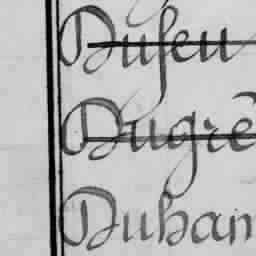 Dufeu
Dugrè
Duham